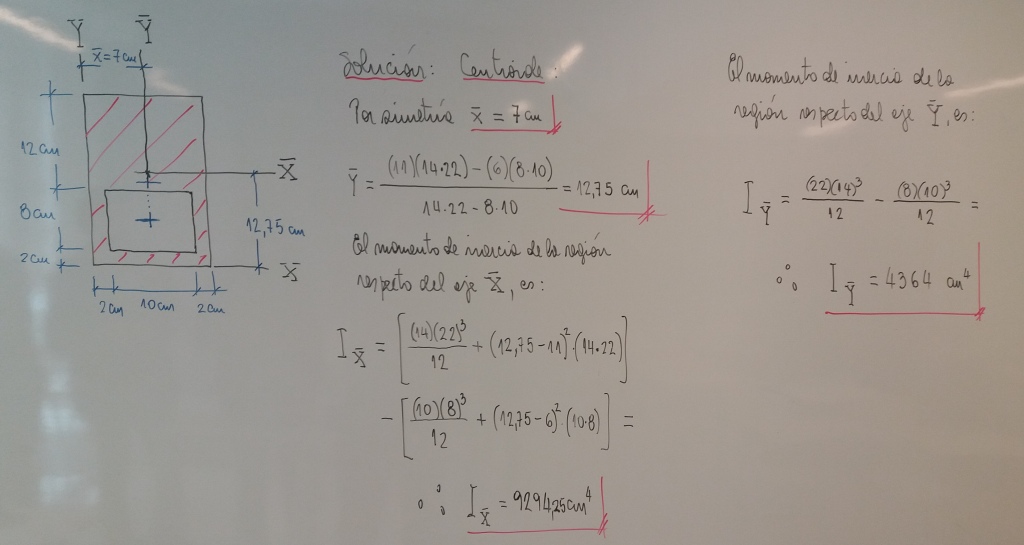 Y Ȳ
x̄=7cm
12cm
8cm
2cm
X̄
12,75 cm
X
2cm 10cm 2cm
Solución: Centroide:
Por simetría x̄ = 7cm
Ȳ = (11)(14·22) − (6)(8·10) / 14·22 − 8·10 = 12,75 cm
El momento de inercia de la región
respecto del eje X̄, es:
I_X̄ = [(14)(22)³/12 + (12,75−11)²·(14·22)]
− [(10)(8)³/12 + (12,75−6)²·(10·8)] =
∴ I_X̄ = 9294,25cm⁴
El momento de inercia de la
región respecto del eje Ȳ, es:
I_Ȳ = (22)(14)³/12 − (8)(10)³/12 =
∴ I_Ȳ = 4364 cm⁴